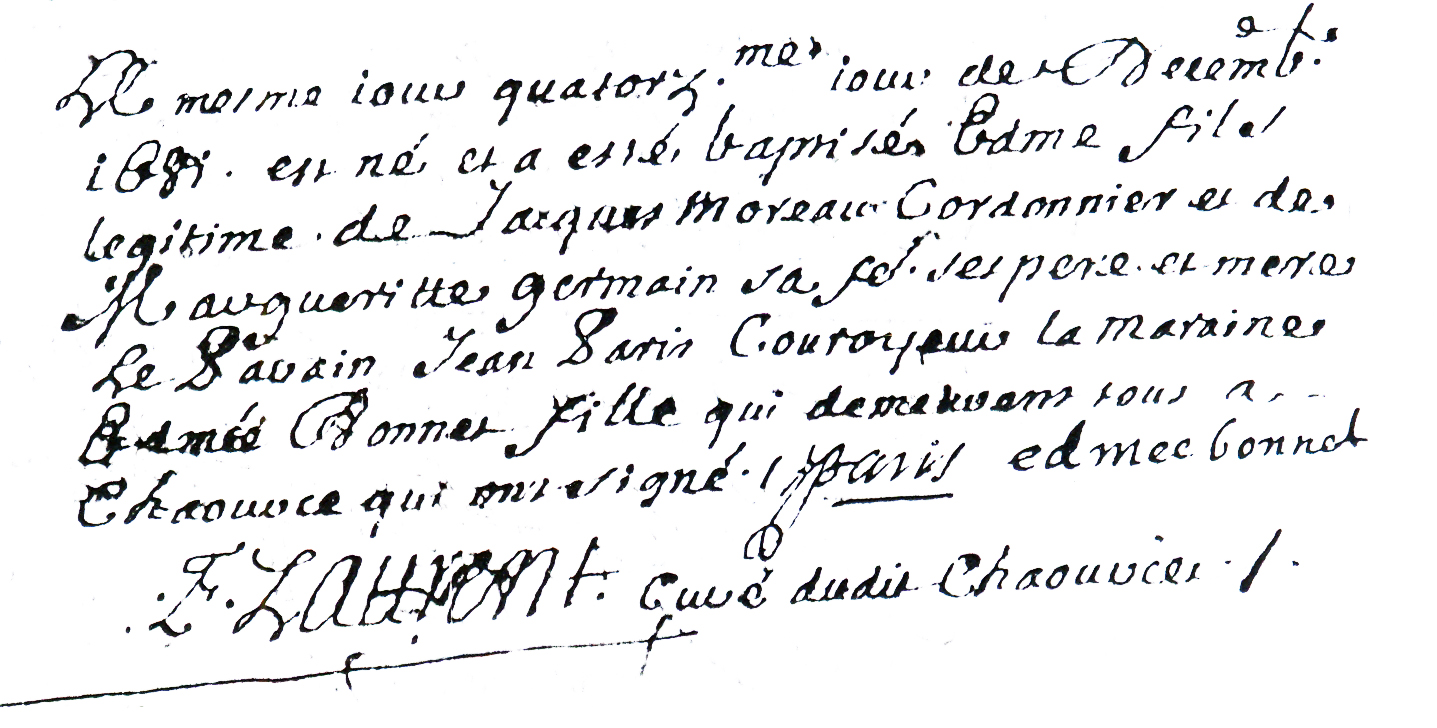 Le mesme iour quatorz.me iour de Decemb.
1681. est né et a esté baptisé Edme fils
legitime de Jacques Moreau Cordonnier et de
Margueritte germain sa fe. ses pere et mere
Le Parain Jean Paris Couroyeur la maraine
Edmée Bonnet fille qui demeurent tous a
Chaource qui ont signé. Paris edmee bonnet
E. LAurent. Curé dudit Chaource